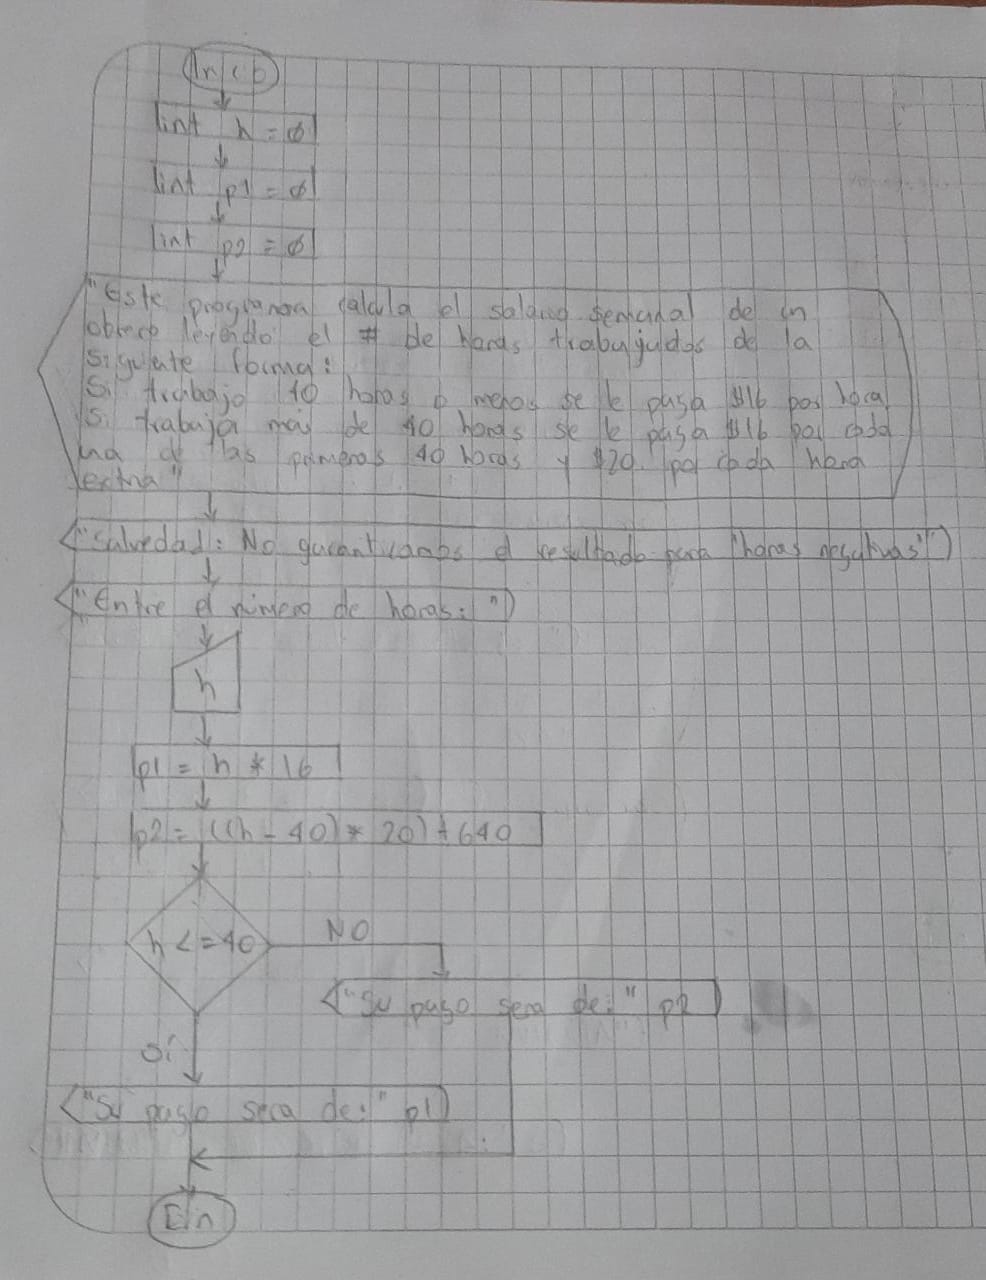 Inicio
int h = 0
int p1 = 0
int p2 = 0
"Este programa calcula el salario semanal de un
obrero leyendo el # de horas trabajadas de la
siguiente forma:
Si trabajo 40 horas o menos se le paga $16 por hora
Si trabaja más de 40 horas se le paga $16 por cada
una de las primeras 40 horas y $20 por cada hora
extra"
"Salvedad: No garantizamos el resultado para "horas negativas""
"Entre el número de horas: "
h
p1 = h * 16
p2 = ((h - 40) * 20) + 640
h <= 40
NO
"Su pago sera de:" p2
Sí
"Su pago sera de:" p1
Fin